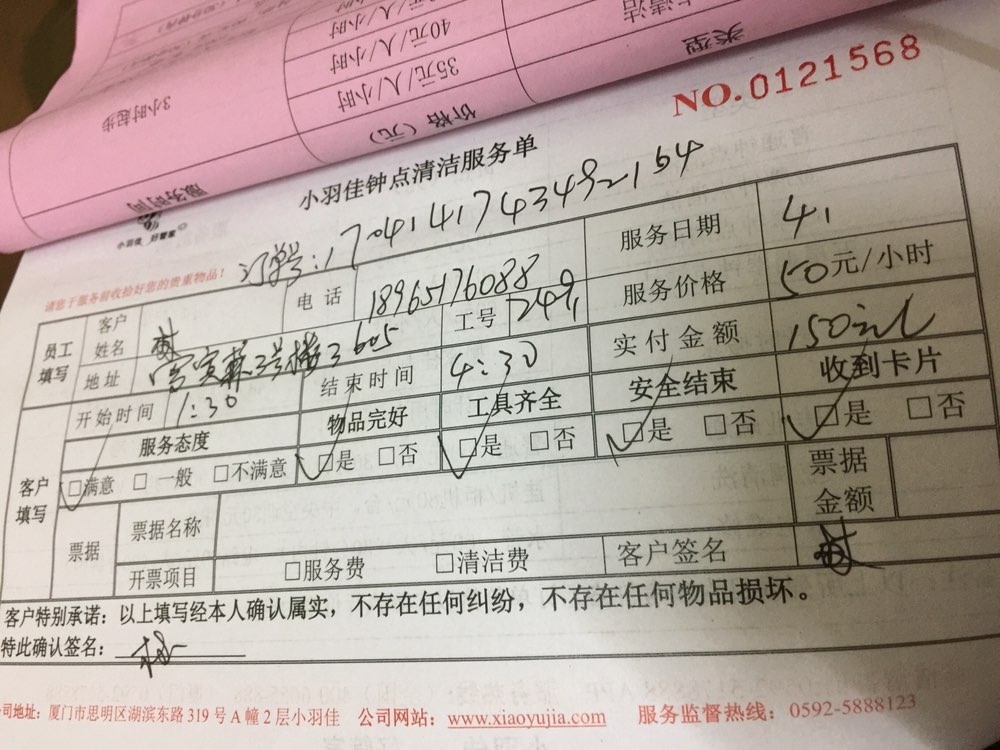 3小时起步
服务时间
价格（元）
35元/人/小时
40元/人/小时
类型
NO.0121568
小羽佳 好管家
小羽佳钟点清洁服务单
请您于服务前收拾好您的贵重物品！
订单号：17041417434992164
员工填写
客户姓名 林 电话 18965176088 服务日期 4.
地址 3号楼 605 工号 249 服务价格 50元/小时
开始时间 1:30 结束时间 4:30 实付金额 150元
服务态度 物品完好 工具齐全 安全结束 收到卡片
客户填写
☑满意 □一般 □不满意 ☑是 □否 ☑是 □否 ☑是 □否 ☑是 □否
票据 票据名称 票据金额
开票项目 □服务费 □清洁费 客户签名 林
客户特别承诺：以上填写经本人确认属实，不存在任何纠纷，不存在任何物品损坏。
特此确认签名：林
公司地址：厦门市思明区湖滨东路319号A幢2层小羽佳 公司网站：www.xiaoyujia.com 服务监督热线：0592-5888123